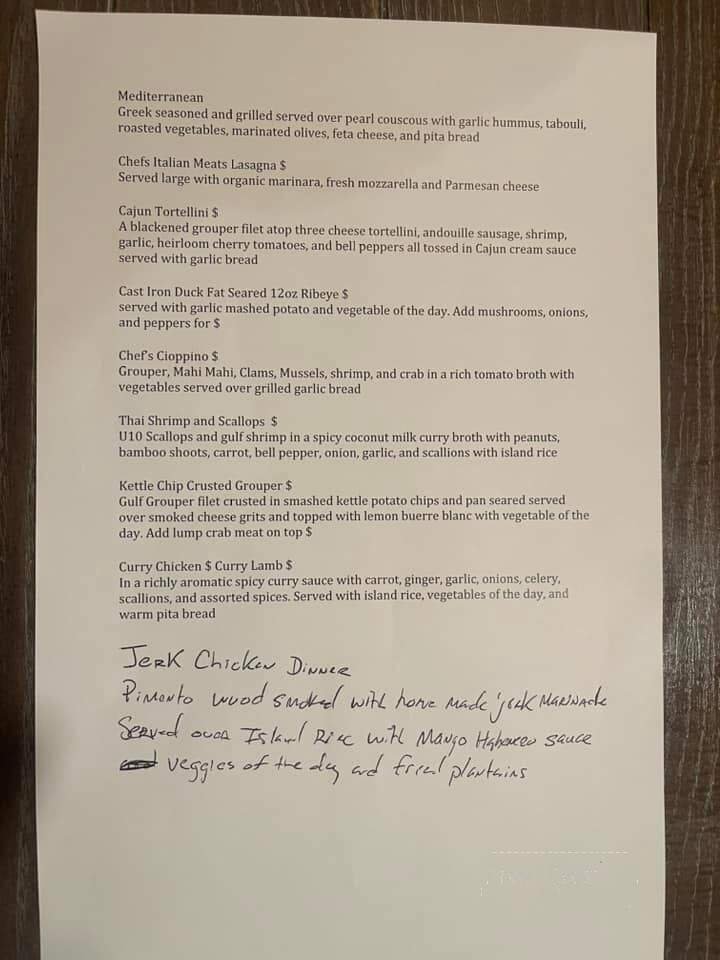 Mediterranean
Greek seasoned and grilled served over pearl couscous with garlic hummus, tabouli,
roasted vegetables, marinated olives, feta cheese, and pita bread
Chefs Italian Meats Lasagna $
Served large with organic marinara, fresh mozzarella and Parmesan cheese
Cajun Tortellini $
A blackened grouper filet atop three cheese tortellini, andouille sausage, shrimp,
garlic, heirloom cherry tomatoes, and bell peppers all tossed in Cajun cream sauce
served with garlic bread
Cast Iron Duck Fat Seared 12oz Ribeye $
served with garlic mashed potato and vegetable of the day. Add mushrooms, onions,
and peppers for $
Chef's Cioppino $
Grouper, Mahi Mahi, Clams, Mussels, shrimp, and crab in a rich tomato broth with
vegetables served over grilled garlic bread
Thai Shrimp and Scallops $
U10 Scallops and gulf shrimp in a spicy coconut milk curry broth with peanuts,
bamboo shoots, carrot, bell pepper, onion, garlic, and scallions with island rice
Kettle Chip Crusted Grouper $
Gulf Grouper filet crusted in smashed kettle potato chips and pan seared served
over smoked cheese grits and topped with lemon buerre blanc with vegetable of the
day. Add lump crab meat on top $
Curry Chicken $ Curry Lamb $
In a richly aromatic spicy curry sauce with carrot, ginger, garlic, onions, celery,
scallions, and assorted spices. Served with island rice, vegetables of the day, and
warm pita bread
Jerk Chicken Dinner
Pimento wood smoked with home made jerk marinade
Served over Island Rice with Mango Habenero sauce
veggies of the day and fried plantains